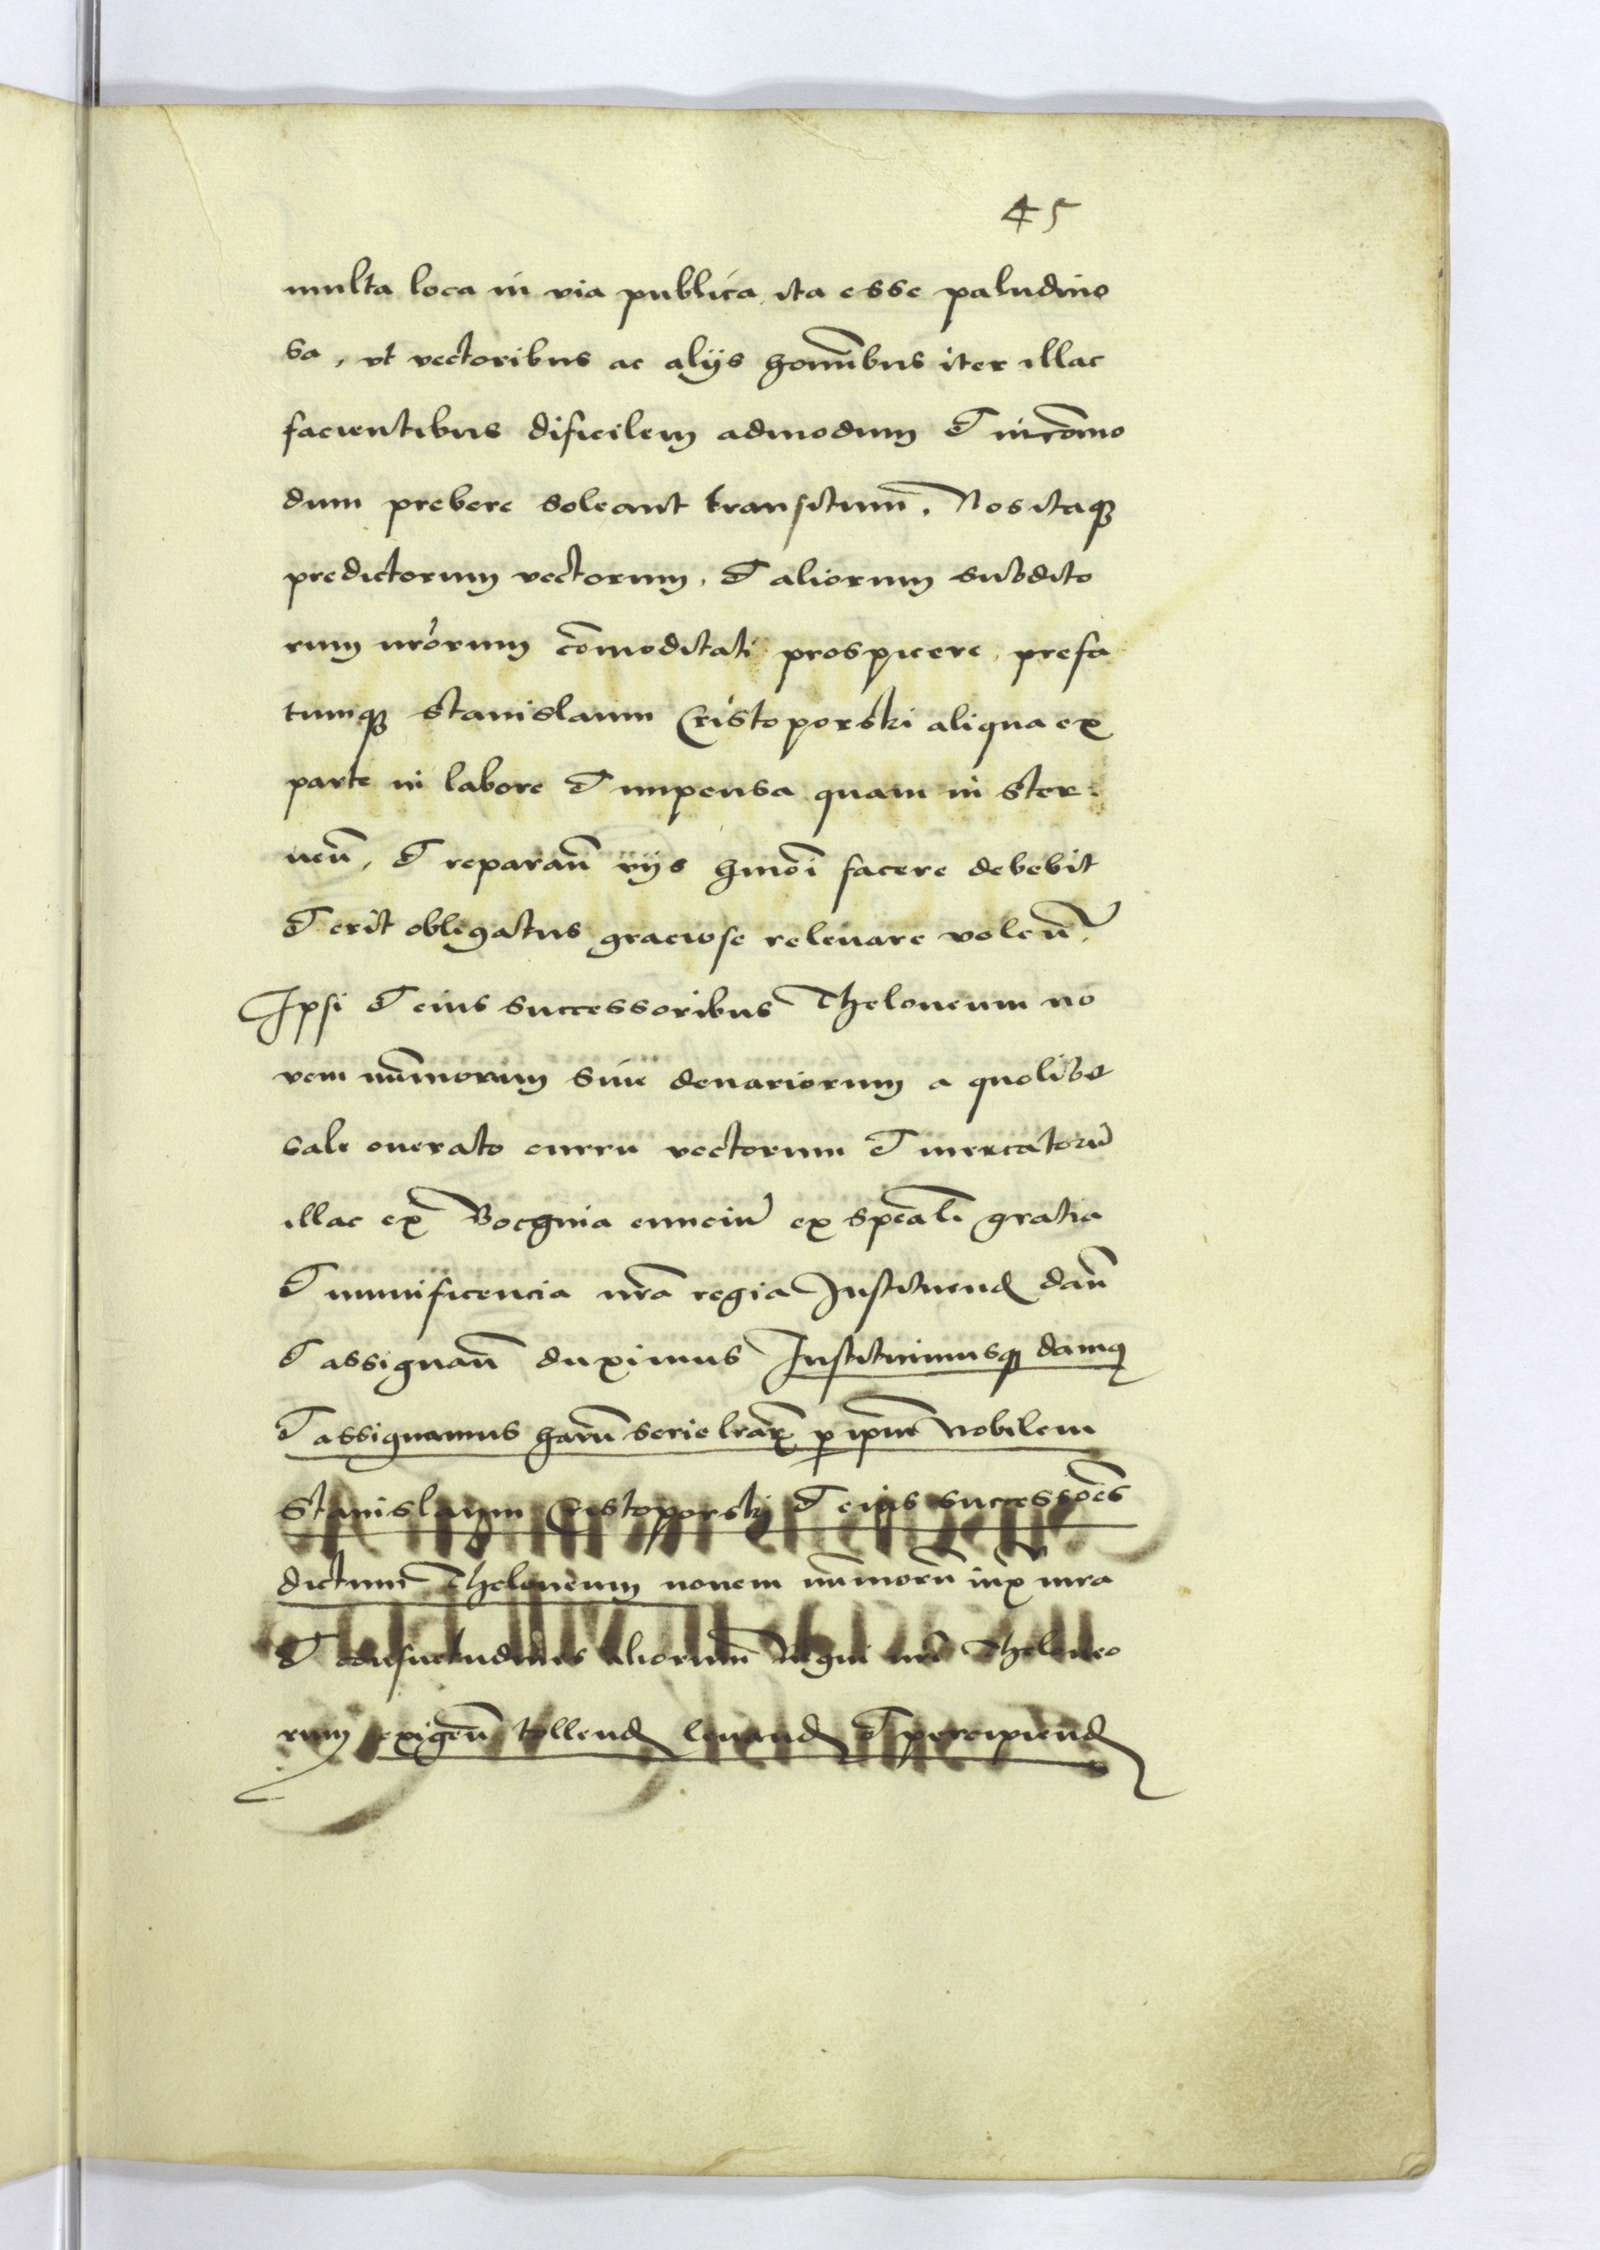 45
multa loca in via publica ita esse paludino
sa, vt vectoribus ac alijs hominībus iter illac
facientibus dificilem admodum et incōmo
dum prebere soleant transitum. Nos itaqꝫ
predictorum vectorum, et aliorum subdito
rum nrōrum cōmoditati prospicere, prefa
tumqꝫ Stanislaum Cristoporski aliqua ex
parte in labore et impensa quam in ster
neñ, et reparañ vijs hmōi facere debebit
et erit obligatus graciose releuare voleñ.
Ipsi et eius successoribus Theloneum no
vem nūmorum siue denariorum a quolibet
sale onerato curru vectorum et mercatorū
illac ex Bochnia enneiū ex speāli gratia
et munificencia nrā regia Instituend dañ
et assignañ duximus Instituimusqꝫ damꝰ
et assignamus harū serie lrāꝝ ꝑ ipm̄ Nobilem
Stanislaum Cristoporski et eius successōes
dictum Theloneum nouem nūmorū iuxͣ iura
et consuetudines aliorum Regni nrī Theloneo
rum exigeñ tollend leuand et percipiend